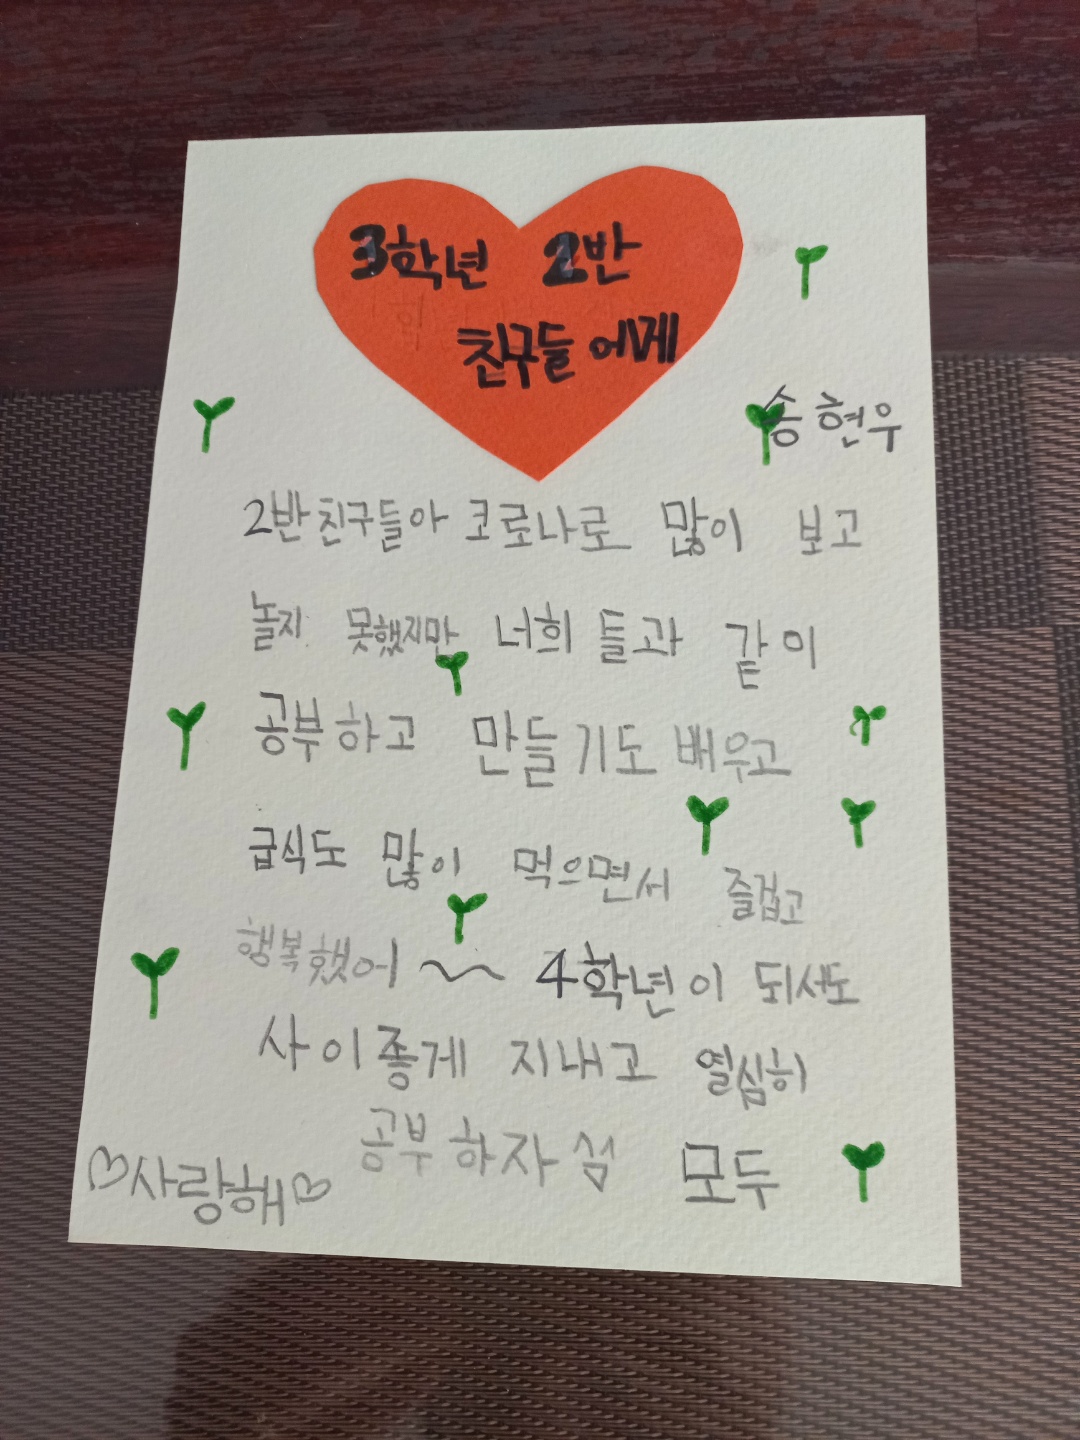 3학년 2반
친구들에게
송현우
2반친구들아 코로나로 많이 보고
놀지 못했지만 너희들과 같이
공부하고 만들기도 배우고
급식도 많이 먹으면서 즐겁고
행복했어~ 4학년이 되서도
사이좋게 지내고 열심히
공부하자 모두
♡사랑해♡